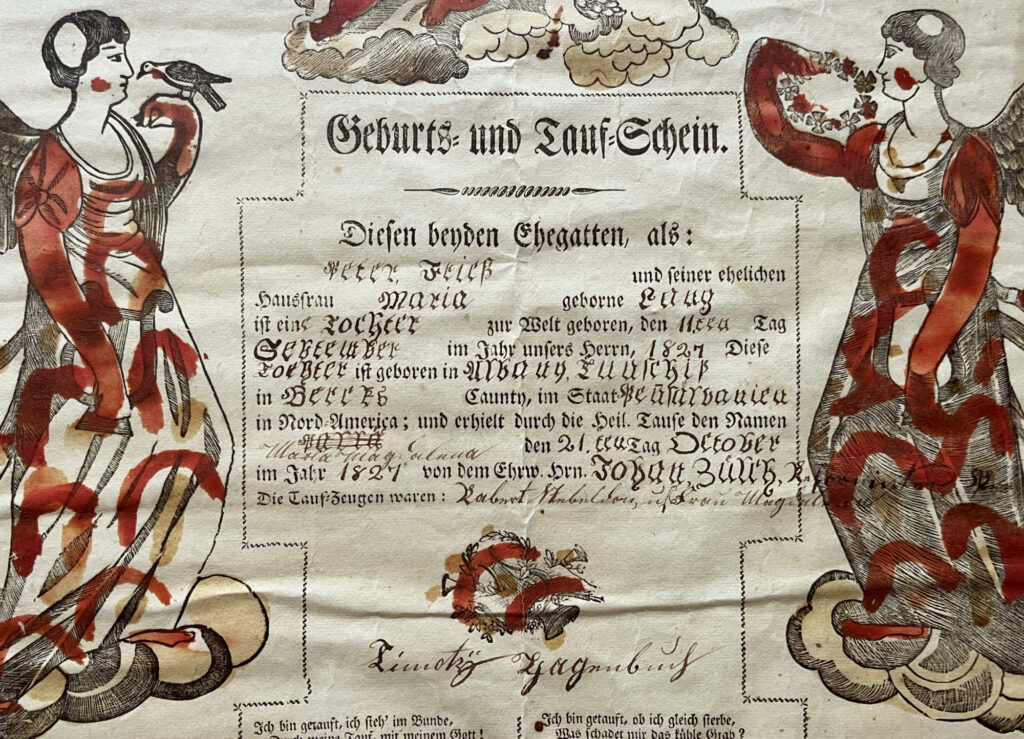 Geburts- und Tauf-Schein.
Diesen beyden Ehegatten, als:
Peter Frieß und seiner ehelichen
Hausfrau Maria geborne Lang
ist eine Tochter zur Welt geboren, den 11ten Tag
September im Jahr unsers Herrn, 1827 Diese
Tochter ist geboren in Albany, Taunschip
in Berks Caunty, im Staat Pensilvanien
in Nord-America; und erhielt durch die Heil. Taufe den Namen
Maria Magdalena den 21.ten Tag October
im Jahr 1827 von dem Ehrw. Hrn. Johan Zülch,
Die Tauf-Zeugen waren: u Frau
Timothy Hagenbuch
Ich bin getauft, ich steh' im Bunde,
Durch meine Tauf, mit meinem Gott!
Ich bin getauft, ob ich gleich sterbe,
Was schadet mir das kühle Grab?